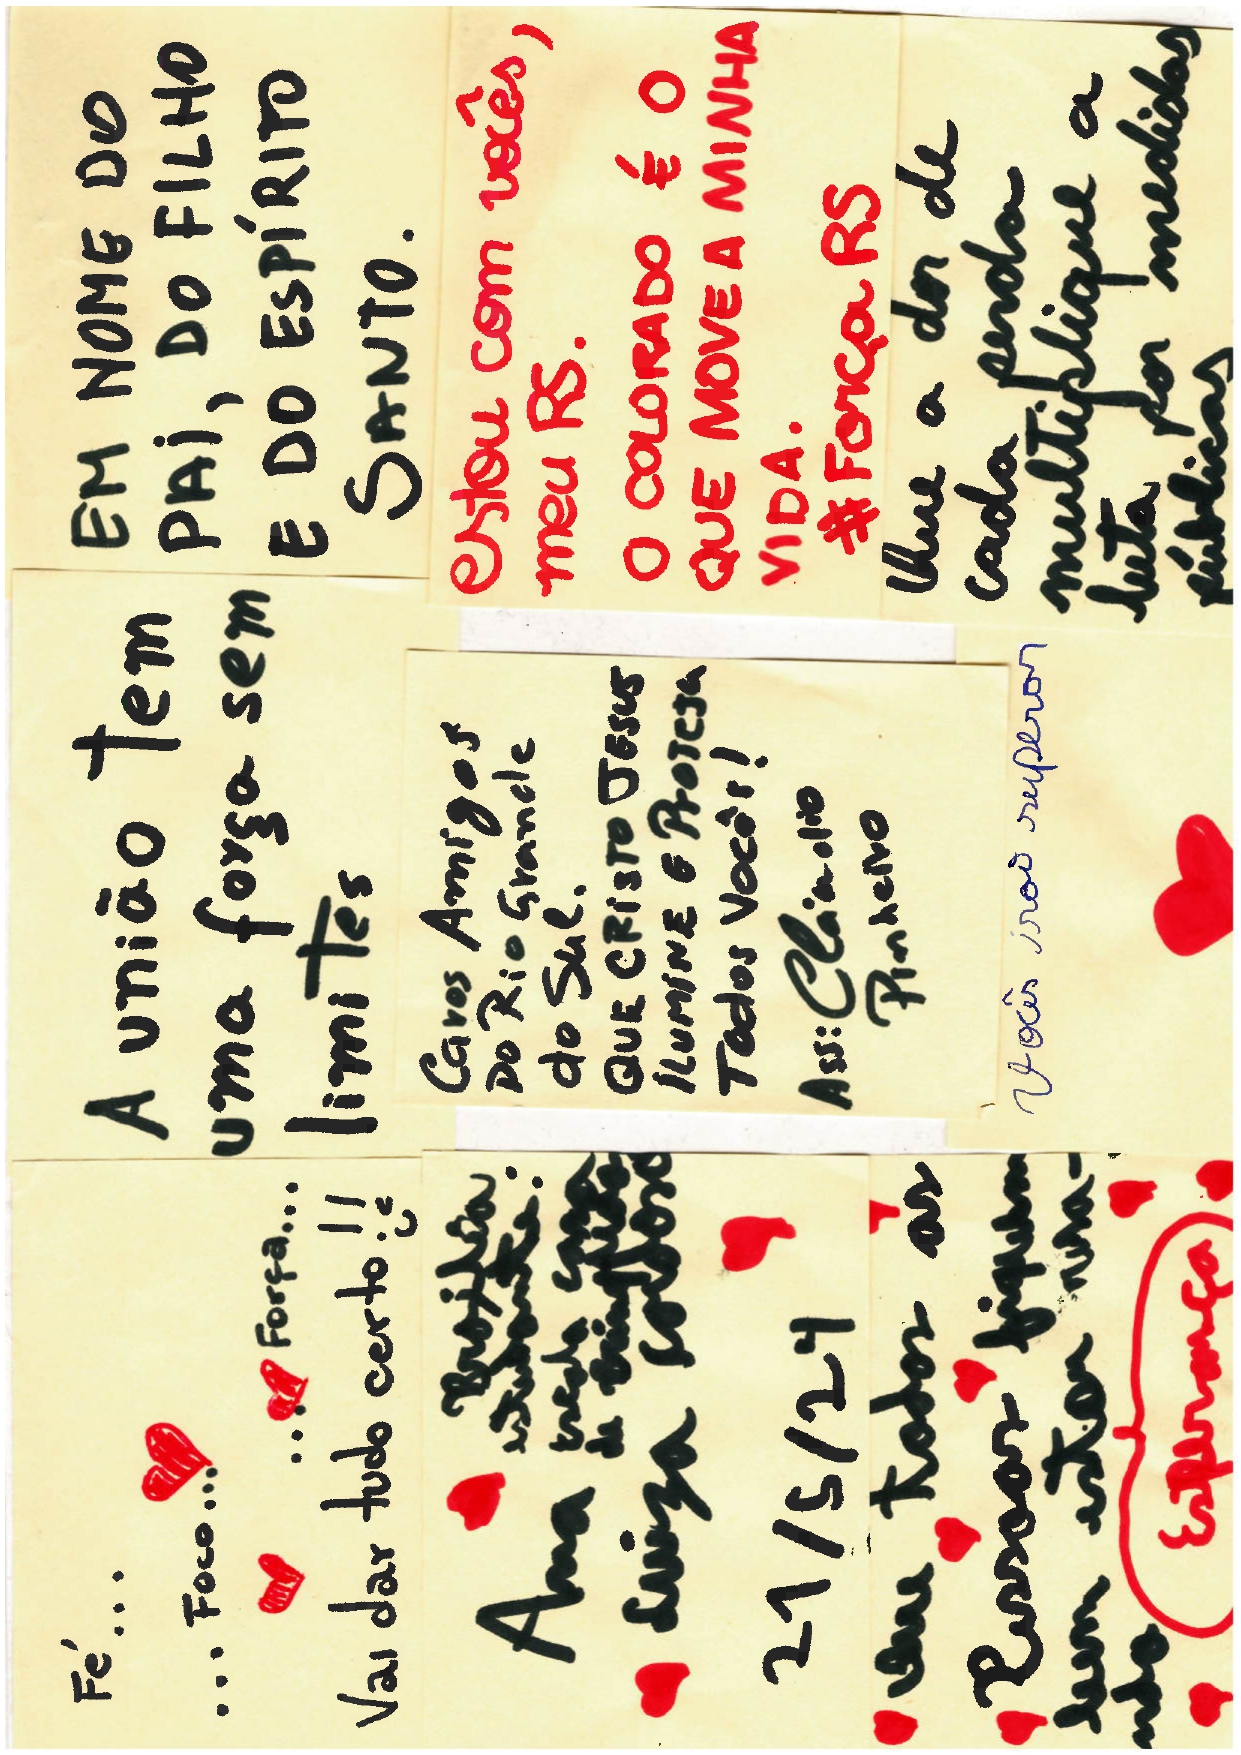 Fé...
... Foco...
... Força...
Vai dar tudo certo!!
A união tem
uma força sem
limites
EM NOME DO
PAI, DO FILHO
E DO ESPÍRITO
SANTO.
Brasília
estudante:
Ana
de
Luiza Cardoso
21/5/24
Caros Amigos
Do Rio Grande
do Sul.
QUE CRISTO JESUS
ILUMINE E PROTEJA
Todos Vocês!
Ass: Cláudio
Pinheiro
estou com vocês,
meu RS.
O COLORADO É O
QUE MOVE A MINHA
VIDA.
#Força RS
que todos as
Pessoas fiquem
bem estou reza-
ndo
Esperança
Vocês irão superar
Que a dor de
cada perda
multiplique a
luta por medidas
públicas